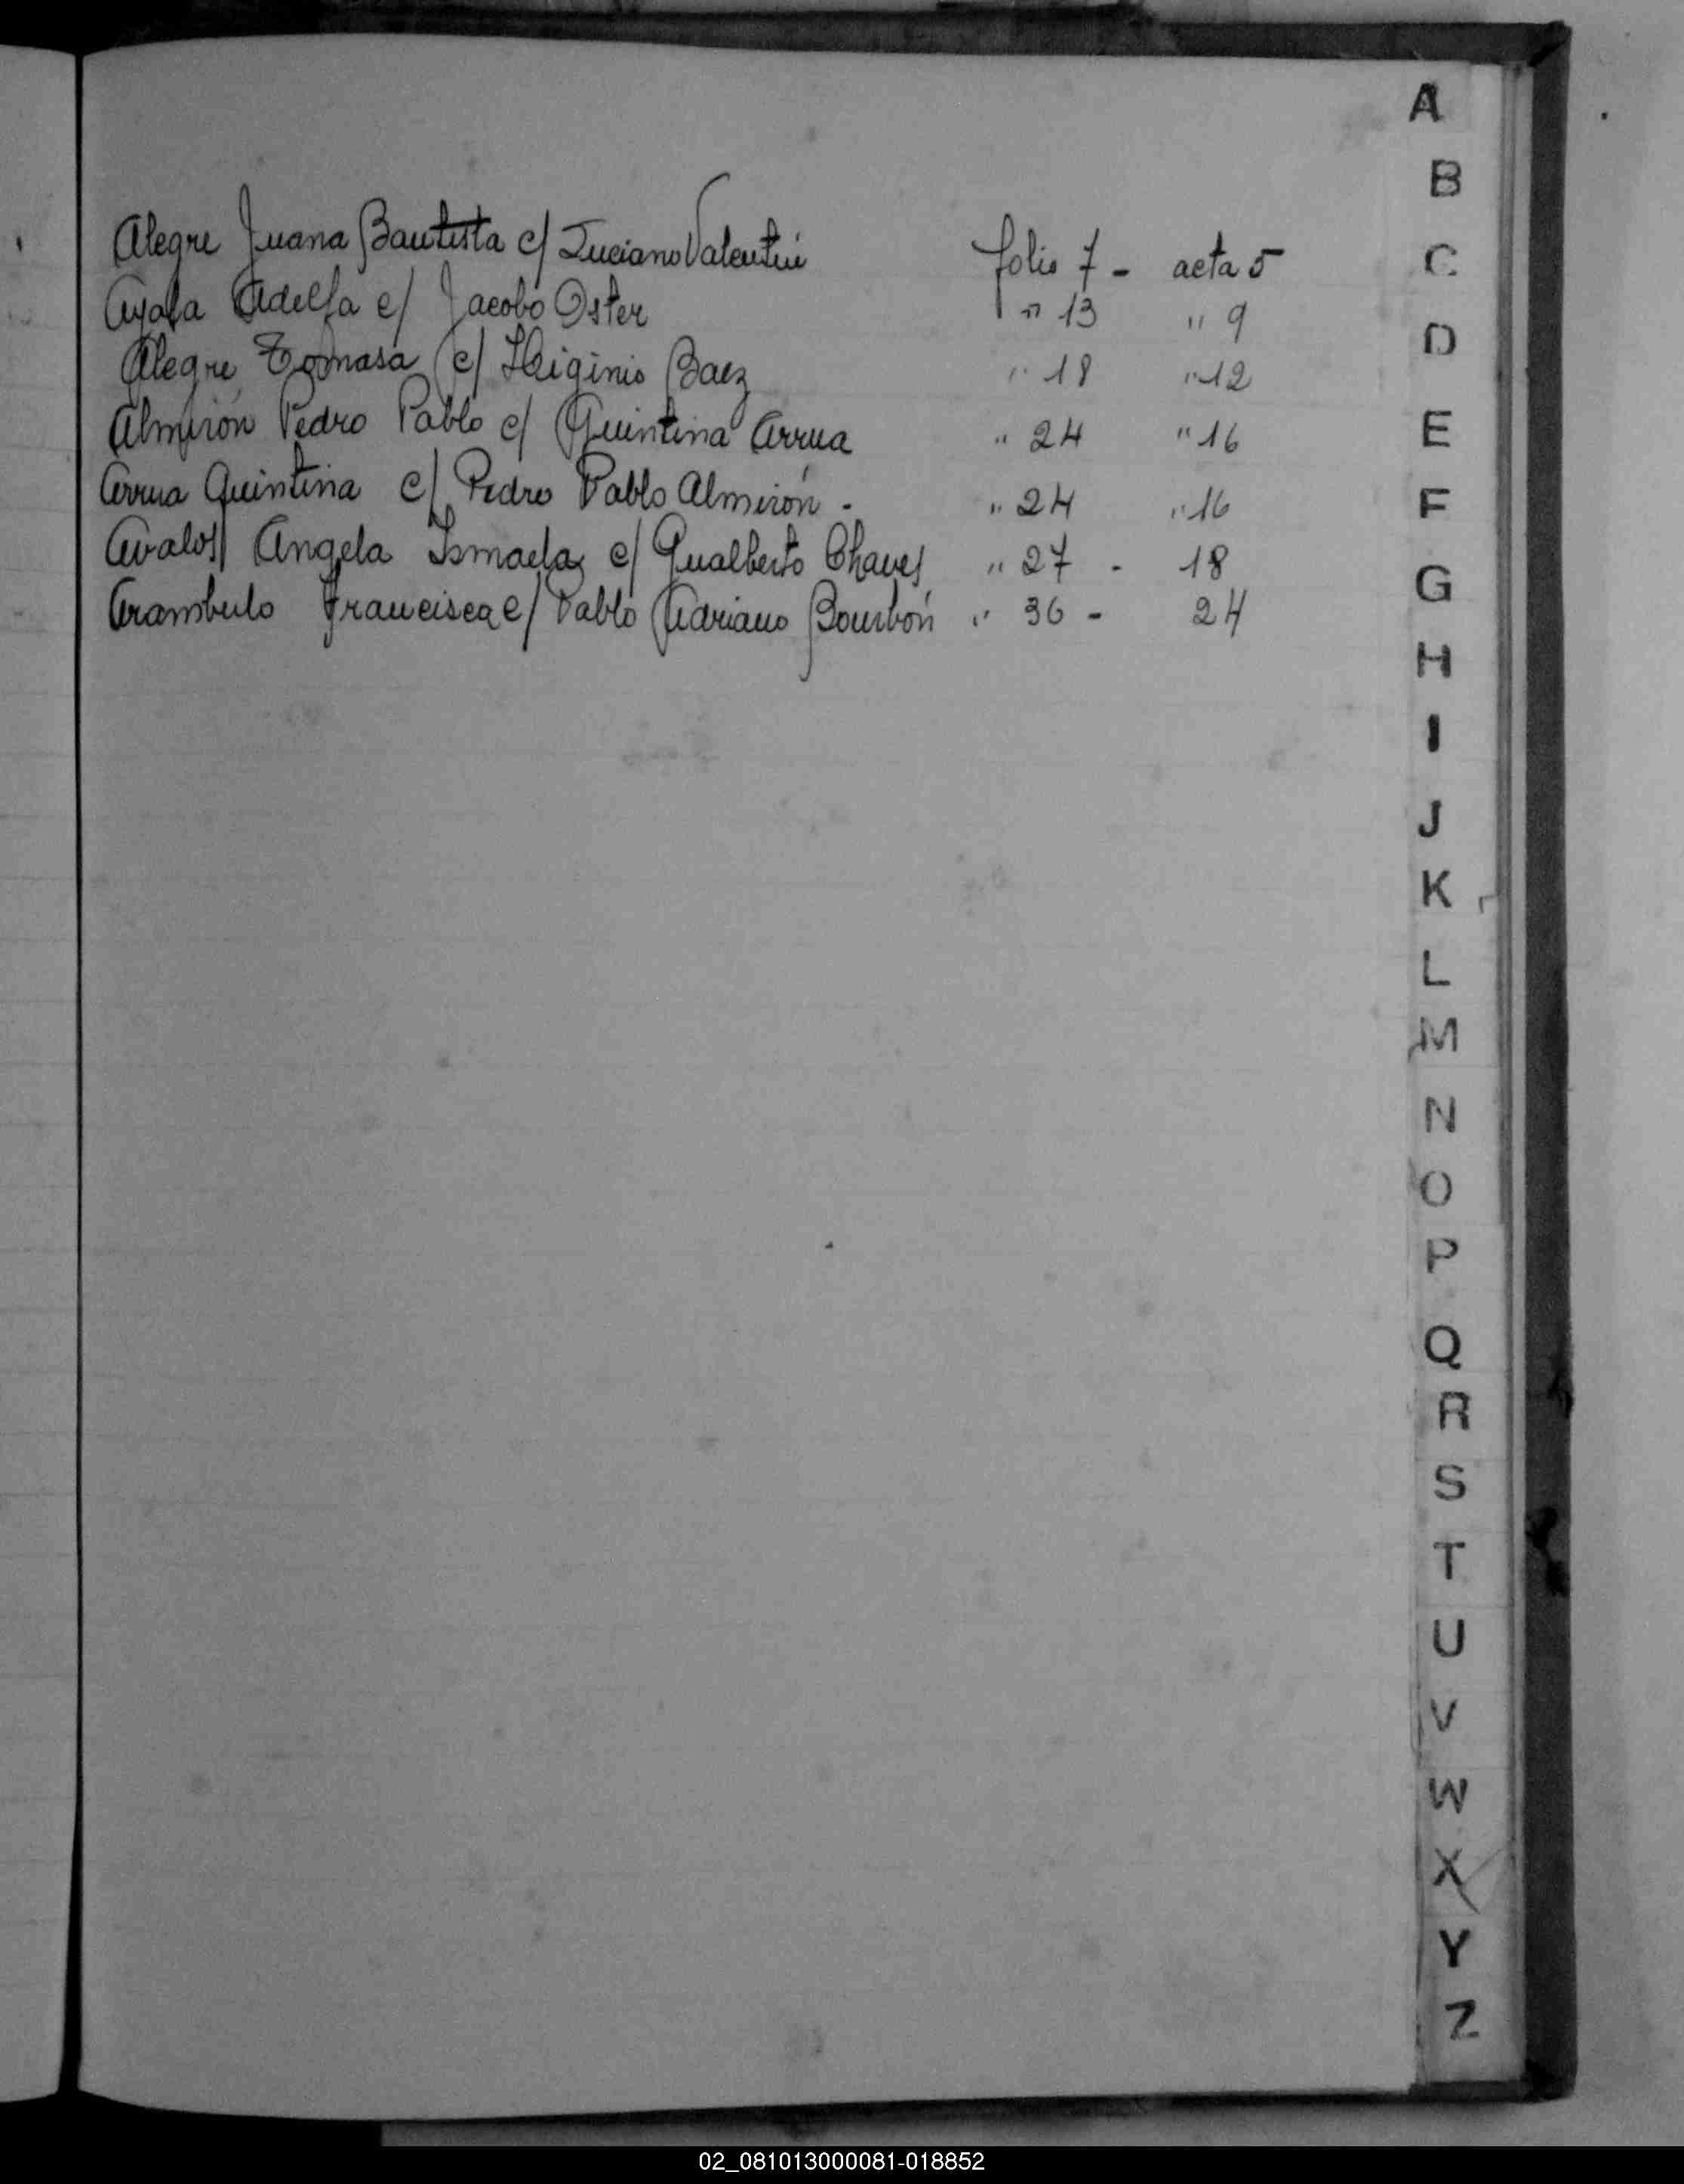 Alegre Juana Bautista c/ Luciano Valentín folio 7 - acta 5
Ayala Adelfa c/ Jacobo Oster " 13 " 9
Alegre Tomasa c/ Higinio Baez " 18 " 12
Almirón Pedro Pablo c/ Quintina Arrua " 24 " 16
Arrua Quintina c/ Pedro Pablo Almirón - " 24 " 16
Avalos Angela Ismaela c/ Gualberto Chaves " 27 - 18
Arambulo Francisca c/ Pablo Adriano Bourbón " 36 - 24
A
B
C
D
E
F
G
H
I
J
K
L
M
N
O
P
Q
R
S
T
U
V
W
X
Y
Z
02_081013000081-018852